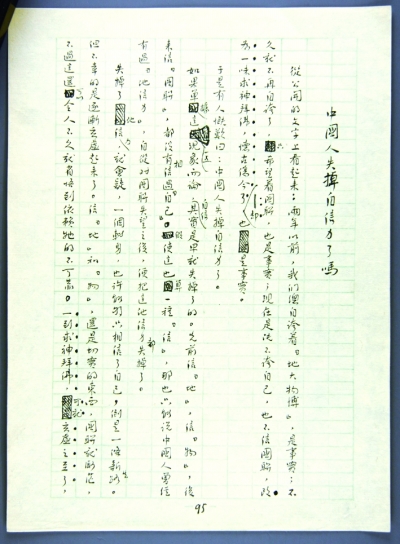 中國人失掉自信力了嗎
從公開的文字上看起來：兩年以前，我們總自誇着“地大物博”，是事實；不
久就不再自誇了，只希望着國聯，也是事實；現在是既不誇自己，也不信國聯，改
為一味求神拜佛，懷古傷今了，卻也是事實。
於是有人慨歎曰：中國人失掉自信力了。
如果單據這一點現象而論，自信其實是早就失掉了的。先前信“地”，信“物”，後
來信“國聯”，都沒有相信過“自己”。假使這也算一種“信”，那也只能說中國人曾經
有過“他信力”，自從對國聯失望之後，便把這他信力都失掉了。
失掉了他信力，就會疑，一個轉身，也許能夠只相信了自己，倒是一條新生路，
但不幸的是逐漸玄虛起來了。信“地”和“物”，還是切實的東西，國聯就渺茫，
不過這還可以令人不久就省悟到依賴它的不可靠。一到求神拜佛，可就玄虛之至了，
95